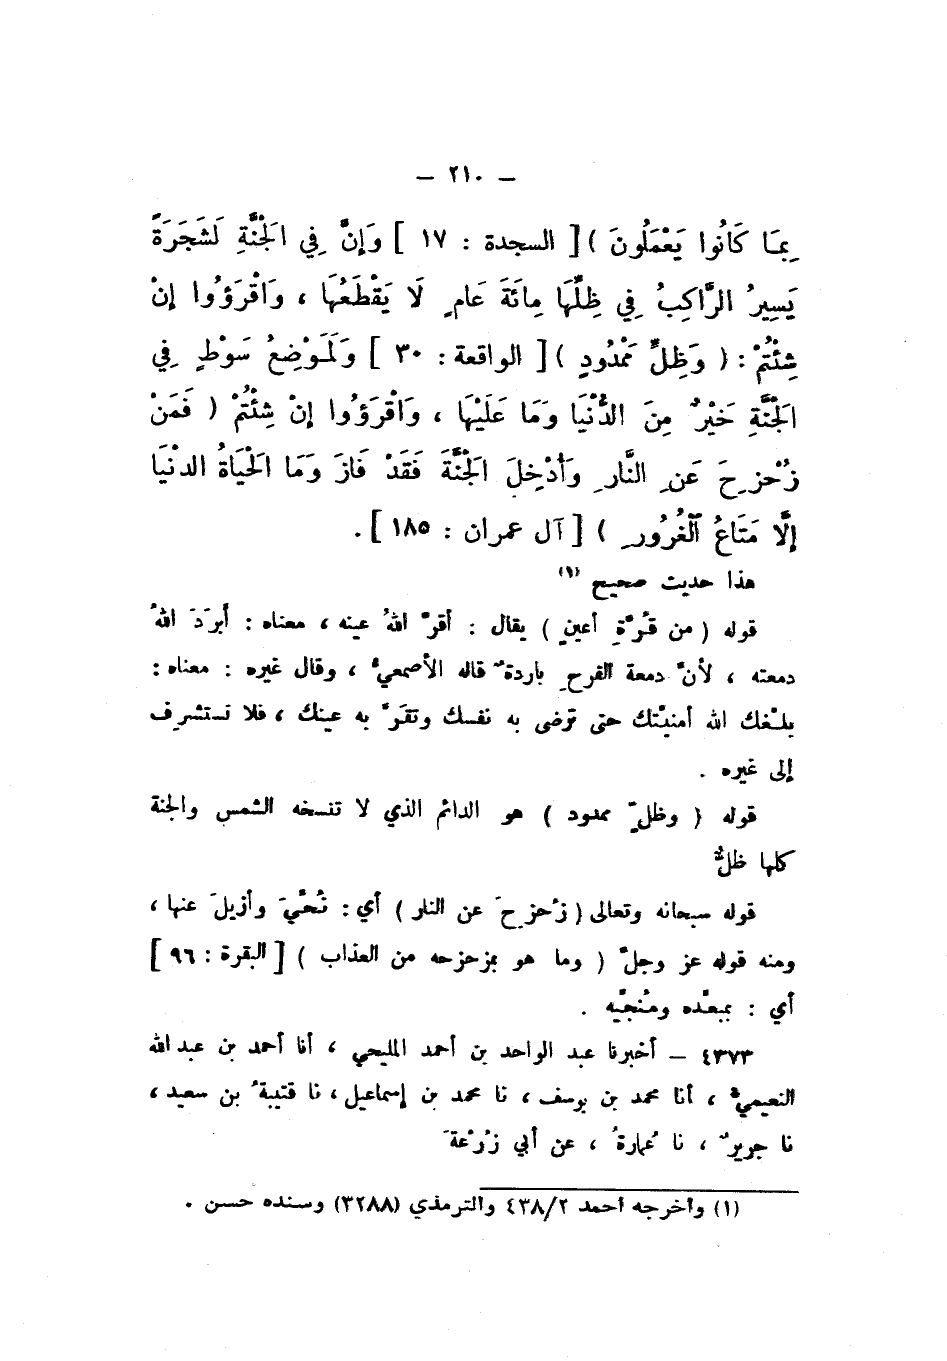 - ٢١٠ -
بِمَا كَانُوا يَعْمَلُونَ ) [ السجدة : ١٧ ] وَإِنَّ فِي الجَنَّةِ لَشَجَرَةً
يَسِيرُ الرَّاكِبُ فِي ظِلِّهَا مِائَةَ عَامٍ لَا يَقْطَعُهَا ، وَاقْرَؤُوا إنْ
شِئْتُمْ : ( وَظِلٍّ مَمْدُودٍ ) [ الواقعة : ٣٠ ] وَلَمَوْضِعُ سَوْطٍ فِي
الجَنَّةِ خَيْرٌ مِنَ الدُّنْيَا وَمَا عَلَيْهَا ، وَاقْرَؤُوا إنْ شِئْتُمْ ( فَمَنْ
زُحْزِحَ عَنِ النَّارِ وَأُدْخِلَ الجَنَّةَ فَقَدْ فَازَ وَمَا الحَيَاةُ الدنْيَا
إلَّا مَتَاعُ الغُرُورِ ) [ آل عمران : ١٨٥ ] .
هذا حديث صحيح (١)
قوله ( من قُرَّةِ أعينٍ ) يقال : أقرَّ اللهُ عينه ، معناه : أبرَدَ اللهُ
دمعته ، لأنَّ دمعة الفرحِ باردةٌ قاله الأصمعيُّ ، وقال غيره : معناه :
بلَّغك الله أمنيَّتك حتى ترضى به نفسك وتقَرَّ به عينك ، فلا تستشرِف
إلى غيره .
قوله ( وظلٍّ ممدود ) هو الدائم الذي لا تنسخه الشمس والجنة
كلها ظلٌّ
قوله سبحانه وتعالى ( زُحزِحَ عن النار ) أي : نُحِّيَ وأزيلَ عنها ،
ومنه قوله عز وجلَّ ( وما هو بمزحزحه من العذاب ) [ البقرة : ٩٦ ]
أي : بمبعِّده ومُنجِّيه .
٤٣٧٣ - أخبرنا عبد الواحد بن أحمد المليحي ، أنا أحمد بن عبد الله
النعيميُّ ، أنا محمد بن يوسف ، نا محمد بن إسماعيل ، نا قتيبةُ بن سعيد ،
نا جريرٌ ، نا عُمارةُ ، عن أبي زُرْعةَ
(١) وأخرجه أحمد ٤٣٨/٢ والترمذي (٣٢٨٨) وسنده حسن .